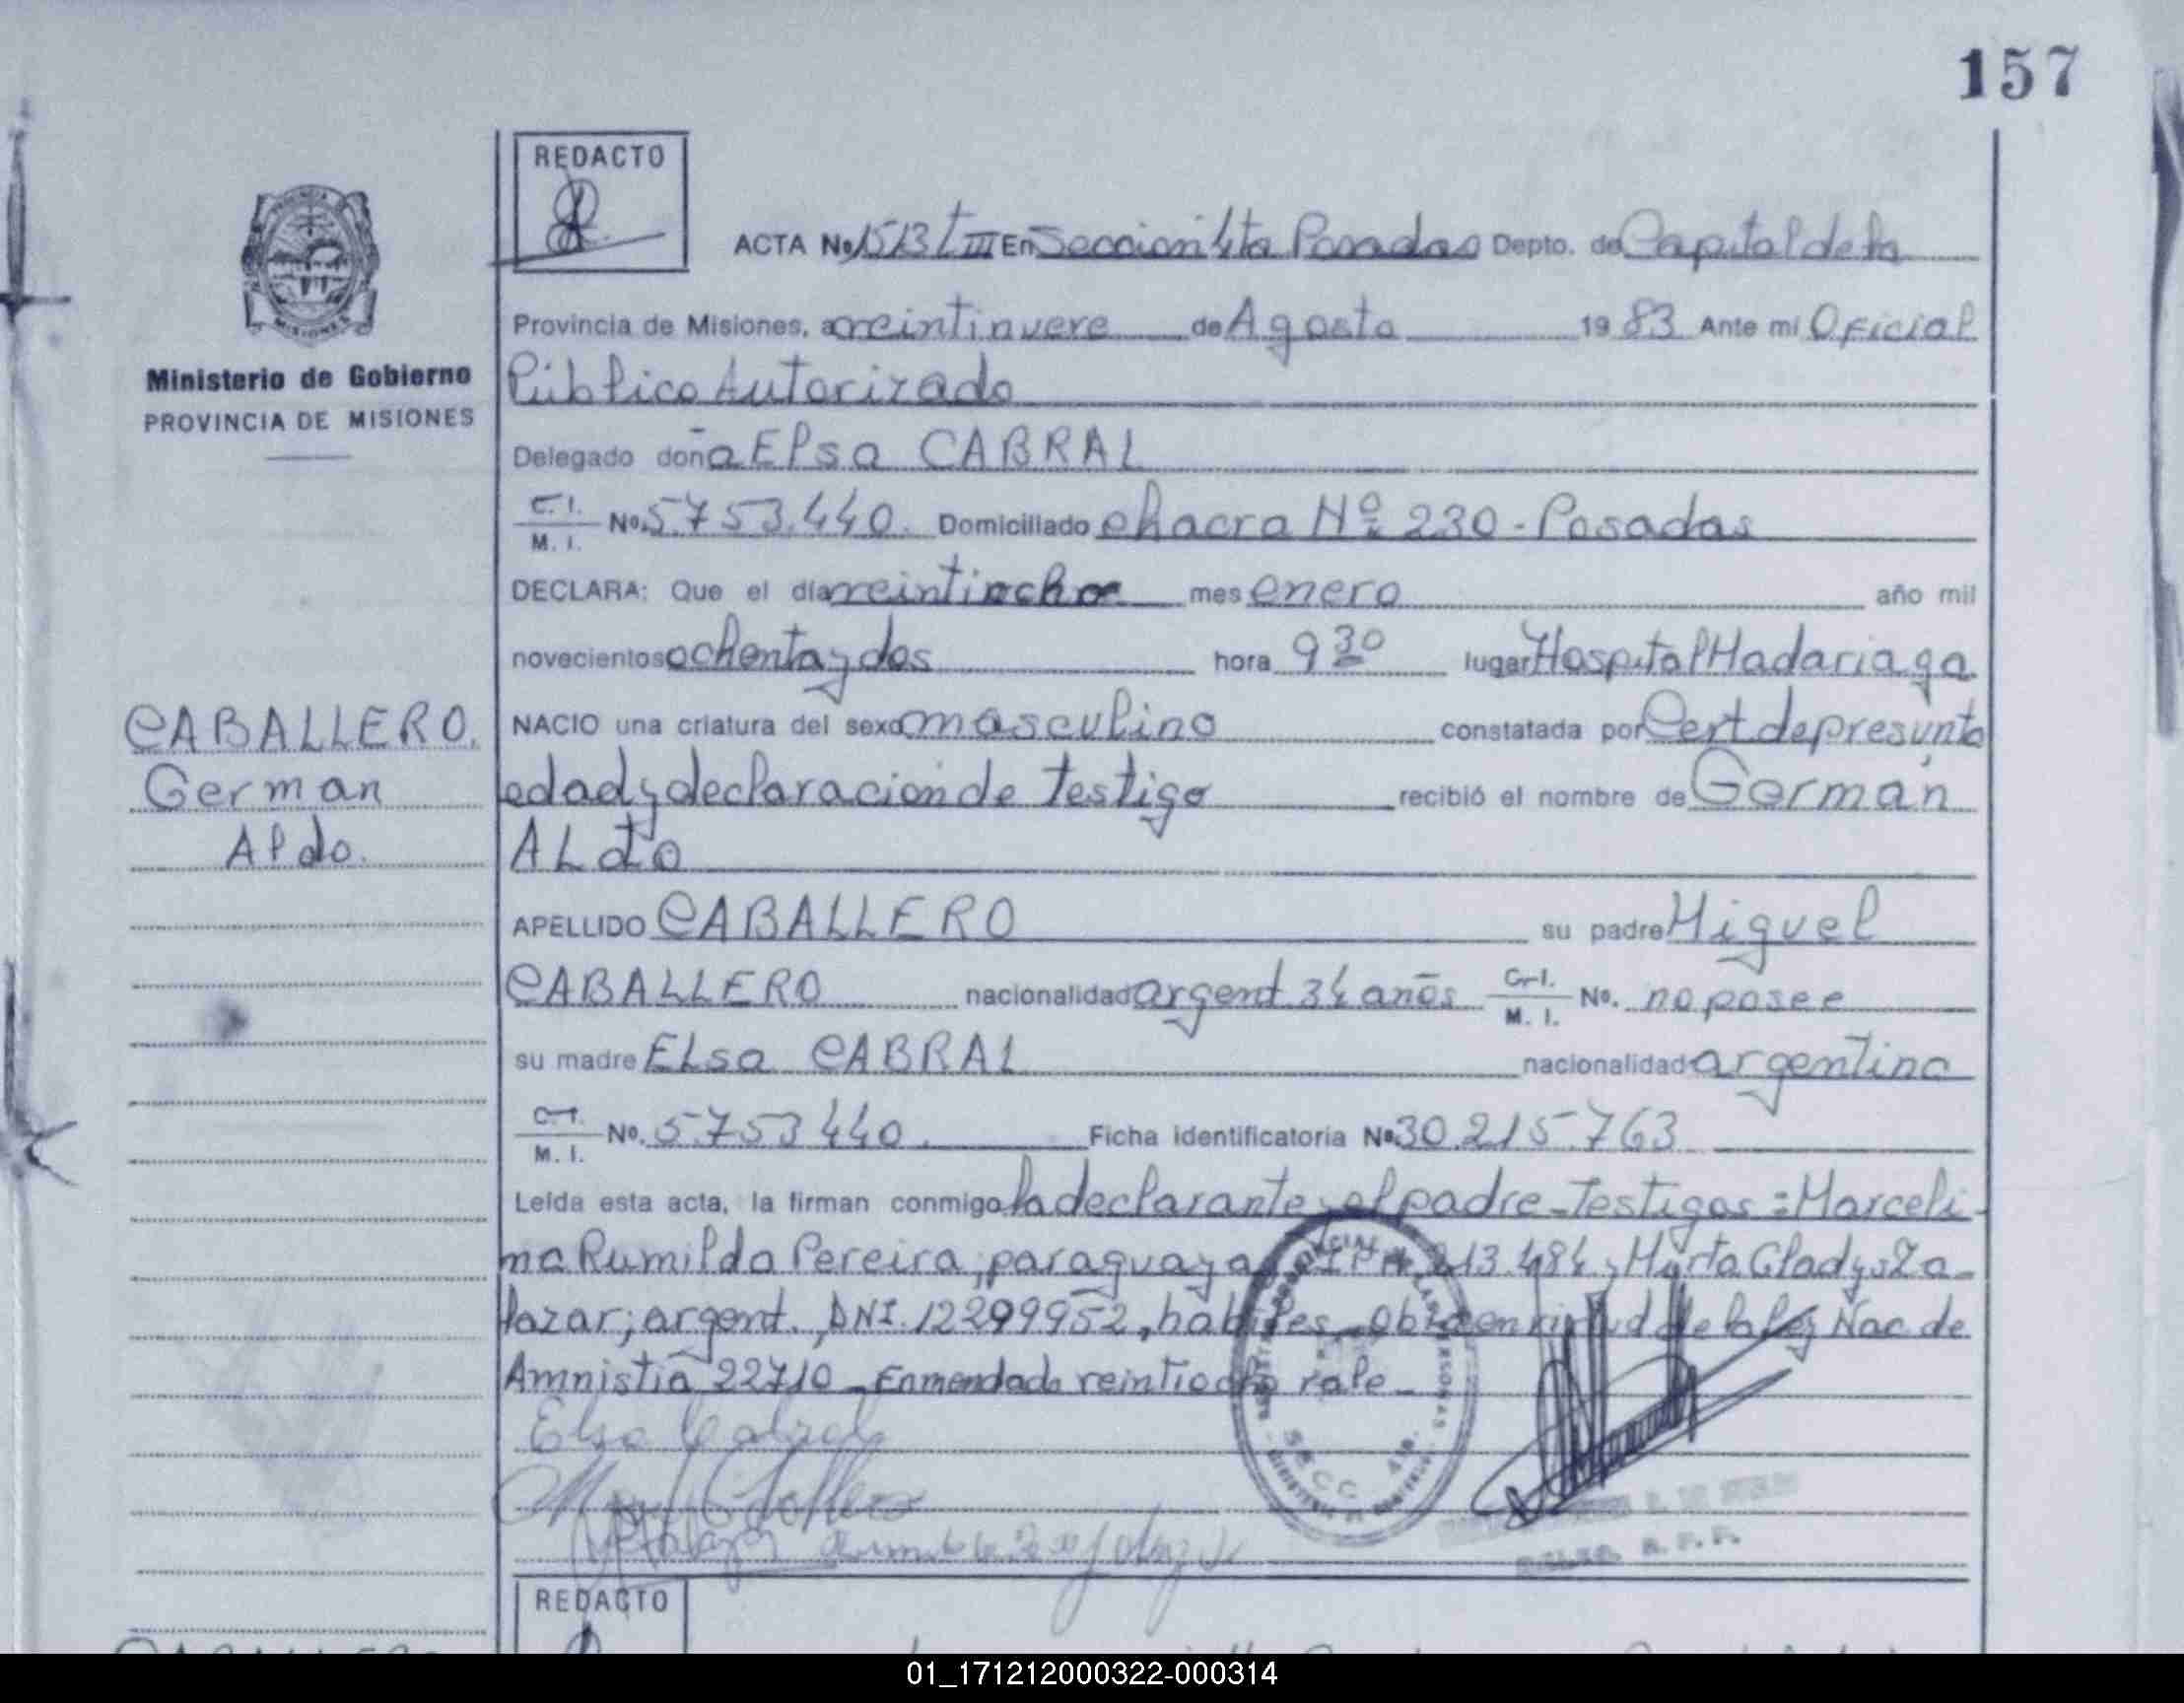 157
REDACTO
ACTA No 1513 T III En Seccion 4ta Posadas Depto. de Capital de la
Provincia de Misiones, a veintinueve de Agosto 19 83 Ante mi Oficial
Ministerio de Gobierno
PROVINCIA DE MISIONES
Público Autorizado
Delegado doña Elsa CABRAL
C. I.
M. I. No. 5.753.440. Domiciliado chacra Nº 230 - Posadas
DECLARA: Que el día veintiocho mes enero año mil
novecientos ochenta y dos hora 9 30 lugar Hospital Madariaga
CABALLERO,
German
Aldo.
NACIO una criatura del sexo masculino constatada por Cert de presunta
edad y declaración de testigo recibió el nombre de Germán
ALdo
APELLIDO CABALLERO su padre Miguel
CABALLERO nacionalidad argent. 34 años C. I.
M. I. No. no posee
su madre ELsa CABRAL nacionalidad argentina
C. I.
M. I. No. 5.753.440. Ficha identificatoria No. 30.215.763
Leída esta acta, la firman conmigo la declarante y el padre - Testigos = Marceli-
na Rumilda Pereira, paraguaya 213.484 y Mirta Gladys Za-
lazar; argent. DNI. 12299952, hábiles - Obr. en virtud de la ley Nac. de
Amnistía 22710 - Enmendado veintiocho vale -
Elsa Cabral
SECC 4ta.
REDACTO
01_171212000322-000314